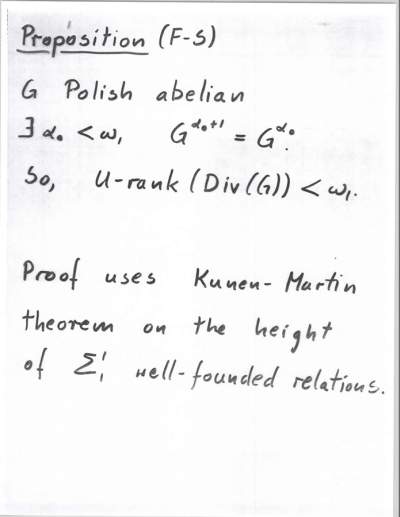 Proposition (F-S)
G Polish abelian
∃ α₀ < ω₁ G^{α₀+1} = G^{α₀}.
So, U-rank (Div(G)) < ω₁.
Proof uses Kunen-Martin
theorem on the height
of Σ¹₁ well-founded relations.